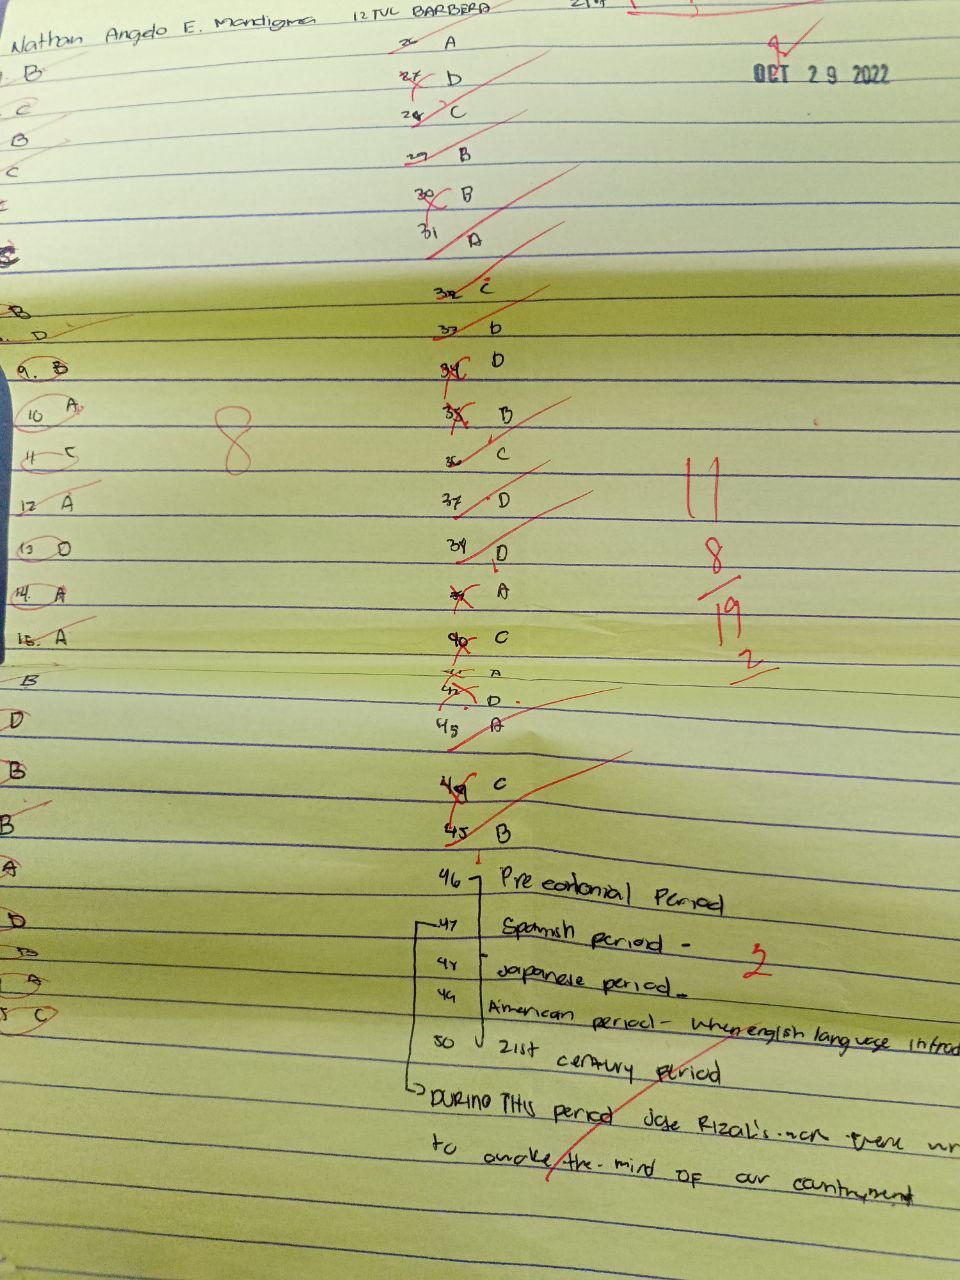 Nathan Angelo E. Mandigma 12 TVL BARBERA 21st
OCT 29 2022
B
C
B
C
B
D
9. B
10 A
11 C
12 A
13 D
14. A
15. A
B
D
B
B
A
D
B
A
C
8
26 A
27 D
28 C
29 B
30 B
31 A
32 C
33 b
34 D
35 B
36 C
37 D
38 D
39 A
40 C
41 A
42 D
43 A
44 C
45 B
11
8
19
2
46 Pre colonial Period
47 Spanish period -
48 Japanese period -
2
49 American period - when english language introd
50 21st century period
DURING THIS period Jose Rizal's
to awake the mind OF our